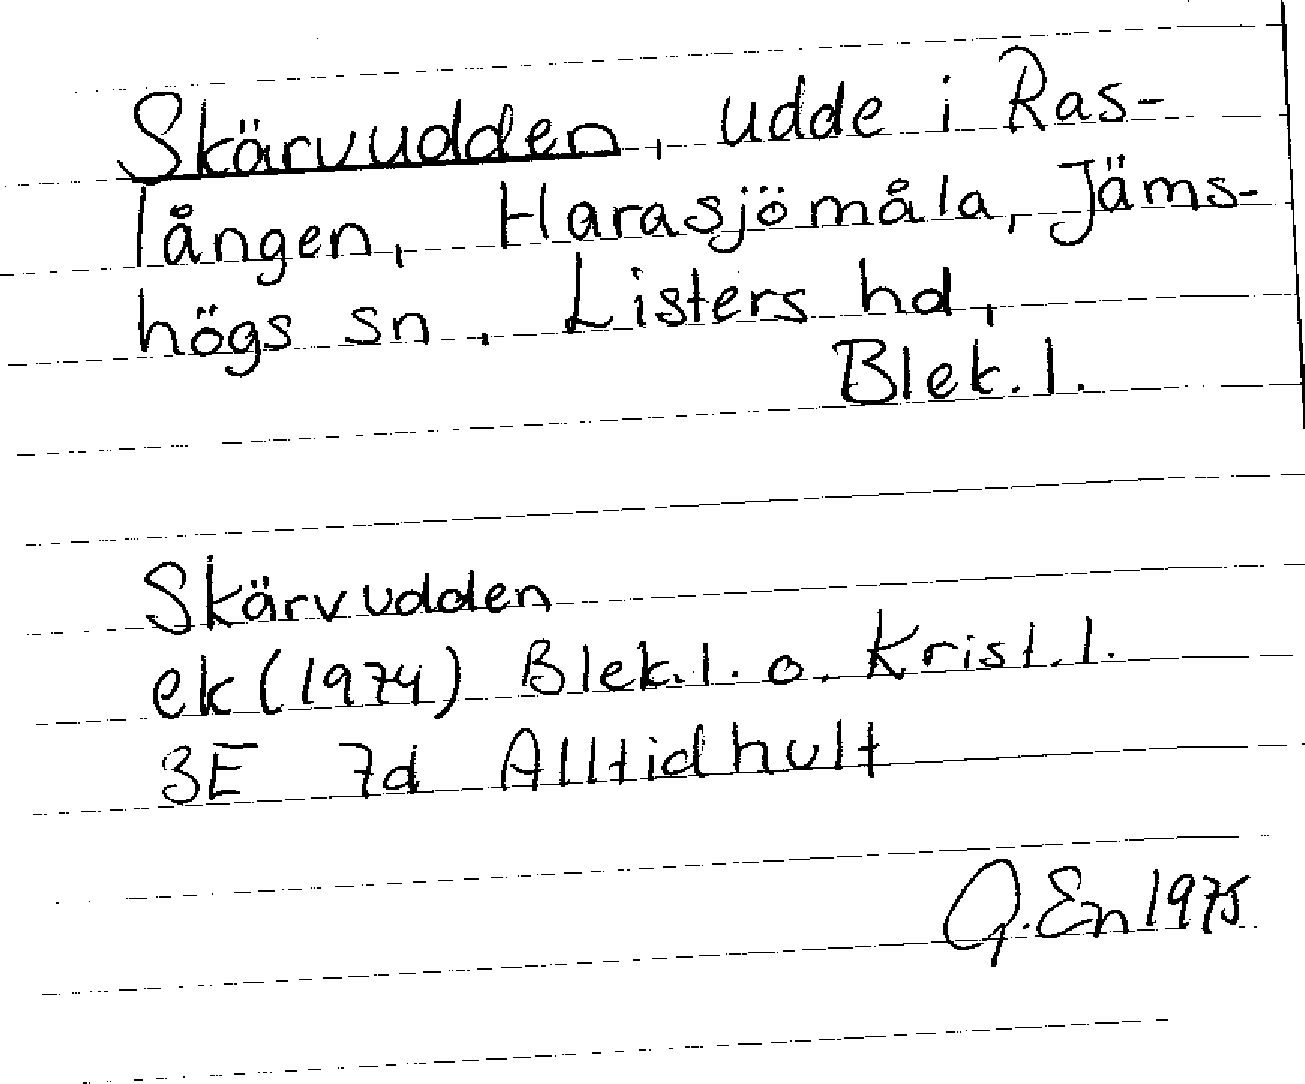 Skärvudden, udde i Ras-
lången, Harasjömåla, Jäms-
högs sn, Listers hd,
Blek. l.
Skärvudden
ek (1974) Blek. l. o. Krist. l.
3E 7d Alltidhult
G. En 1975